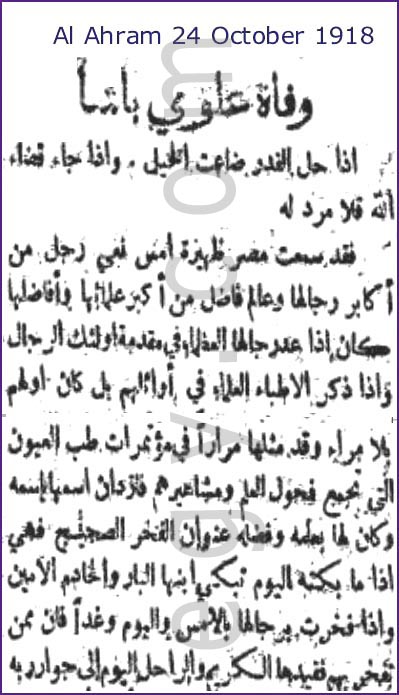 Al Ahram 24 October 1918
وفاة علوي باشا
اذا حل القدر ضاعت الحيل . واذا جاء قضاء
الله فلا مرد له
فقد سمعت مصر ظهيرة أمس نعي رجل من
أكابر رجالها وعالم فاضل من أكبر علمائها وأفاضلها
كان إذا عد رجالها العظماء في مقدمة اولئك الرجال
واذا ذكر الاطباء العلماء في أوائلهم بل كان اولهم
بلا مراء وقد مثلها مراراً في مؤتمرات طب العيون
التي تجمع فحول العلم ومشاهيرهم فازدان اسمها باسمه
وكان لها بعلمه وفضله عنوان الفخر الصحيح فهي
اذا ما بكته اليوم تبكي ابنها البار والخادم الامين
واذا فخرت برجالها بالأمس واليوم وغداً فان ممن
تفخر بهم فقيدها الكريم والراحل اليوم الى جوار ربه